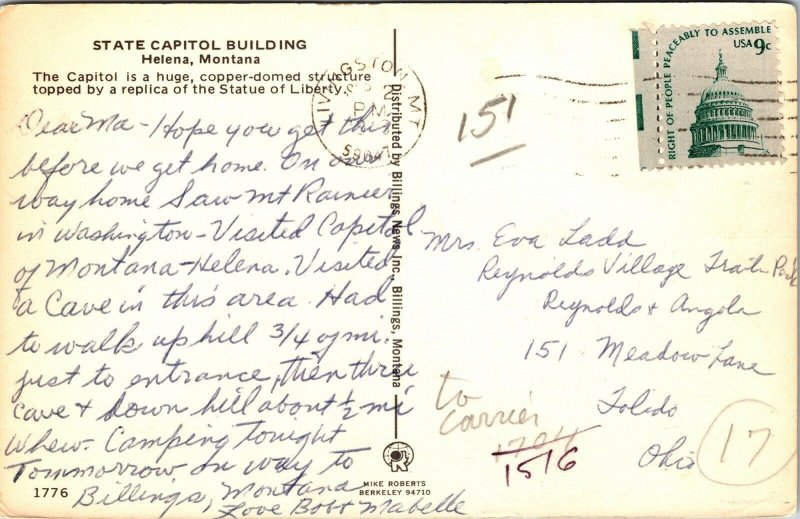 STATE CAPITOL BUILDING
Helena, Montana
The Capitol is a huge, copper-domed structure
topped by a replica of the Statue of Liberty.
Dear Ma - Hope you get this
before we get home. On our
way home Saw Mt Rainier
in Washington - Visited Capitol
of Montana - Helena. Visited
a Cave in this area. Had
to walk up hill 3/4 of mi.
just to entrance, then thru
cave & down hill about 1/2 mi
Whew. Camping tonight
Tommorrow on way to
Billings, Montana
Love Bob & Mabelle
1776
Distributed by Billings News Inc., Billings, Montana
MIKE ROBERTS
BERKELEY 94710
LIVINGSTON MT
PM
59047
151
RIGHT OF PEOPLE PEACEABLY TO ASSEMBLE
USA 9c
Mrs. Eva Ladd
Reynolds Village Trailer Park
Reynolds & Angola
151 Meadow Lane
Toledo
Ohio
to
Carrier
1704
1516
17